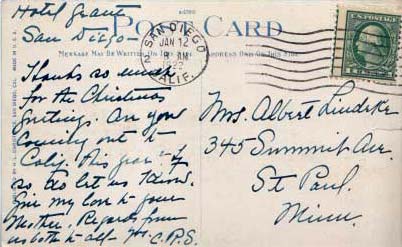 Hotel Grant
San Diego -
POST CARD
MESSAGE MAY BE WRITTEN ON
ADDRESS ONLY ON THIS SIDE
SAN DIEGO
JAN 12
CALIF.
U.S. POSTAGE
Thanks so much
for the Christmas
Greetings. Are you
Coming out to
Calif. this year - If
so, do let us know.
Give my love to your
Mother. Regards from
us both to all -
C.P.S.
Mrs. Albert Lindeke
345 Summit Ave.
St Paul.
Minn.